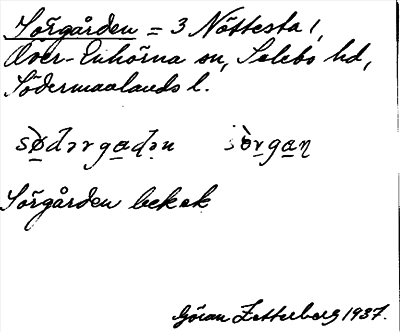 Sörgården = 3 Nöttesta 1,
Över-Enhörna sn, Selebo hd,
Södermanlands l.
sø̀dərgaḍən sø̀rgaṇ
Sörgården bekok
Göran Zetterberg 1937.